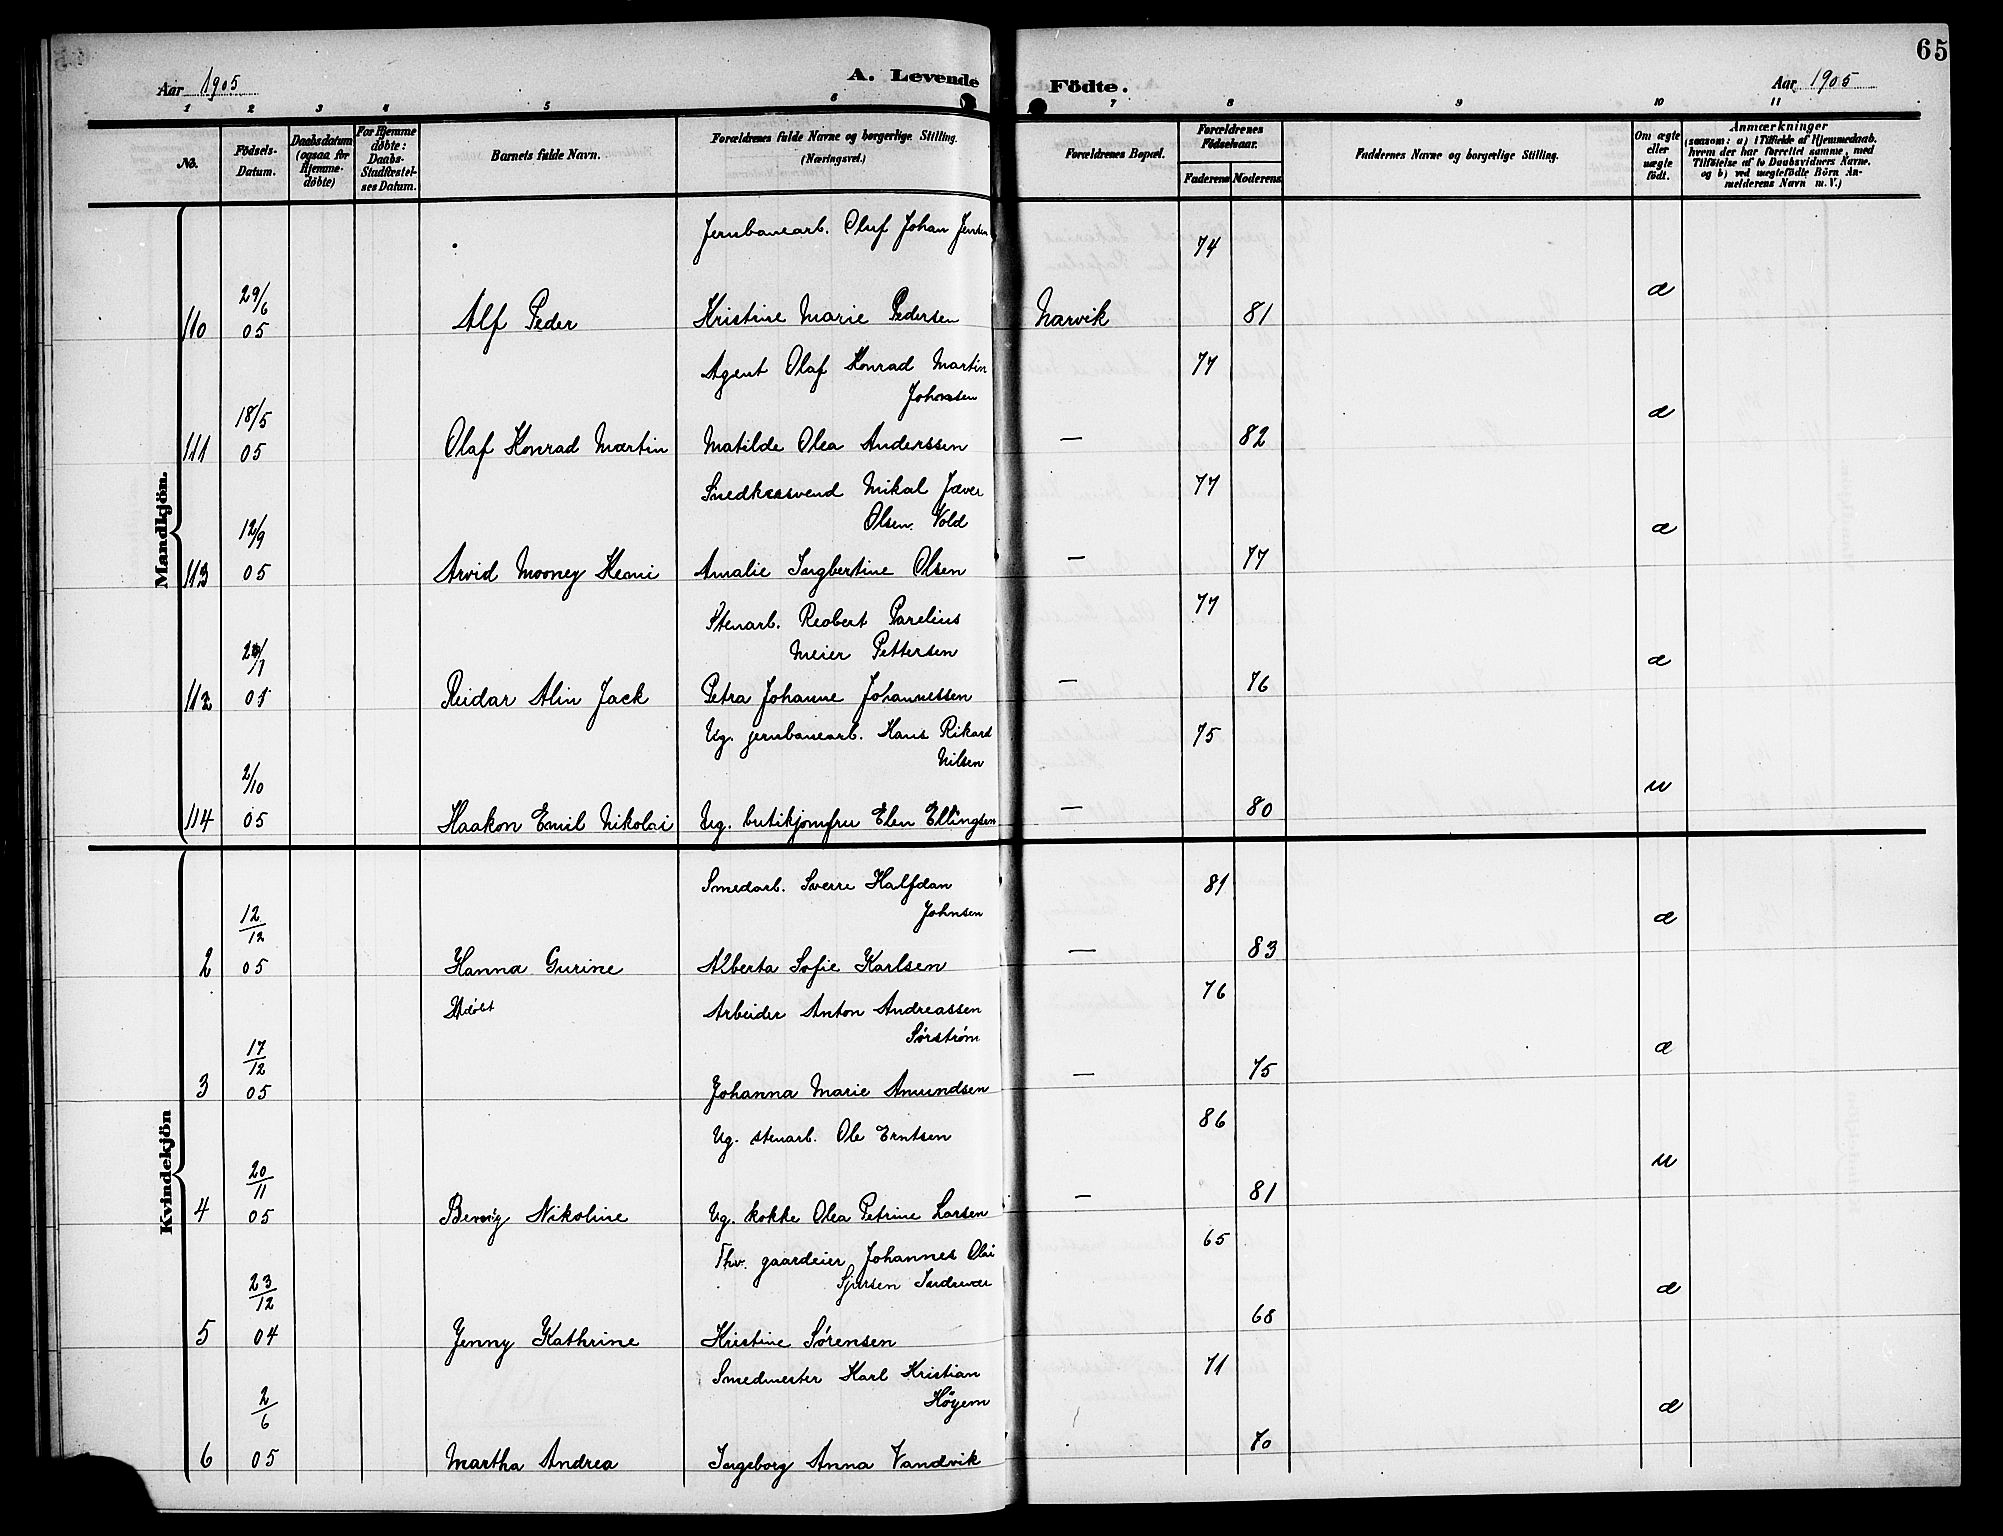 65
Aar 1905
A. Levende Födte.
Aar 1905
1 2 3 4 5 6 7 8 9 10 11
No.
Födsels-Datum.
Daabsdatum (ogsaa for Hjemmedøbte)
For Hjemmedøbte: Daabs-Stadfæstelses Datum.
Barnets fulde Navn.
Forældrenes fulde Navne og borgerlige Stilling. (Næringsvei.)
Forældrenes Bopæl.
Forældrenes Födselsaar.
Faderens Moderens
Faddernes Navne og borgerlige Stilling.
Om ægte eller uægte født.
Anmærkninger
(saasom: a) i Tilfælde af Hjemmedaab. hvem der har forrettet samme, med Tilföielse af to Daabsvidners Navne. og b) ved uægtefödte Börn Anmelderens Navn m. V.)
Mandkjön.
Jernbanearb. Oluf Johan Jensen 74
29/6 æ
110 05 Alf Peder Kristine Marie Pedersen Narvik 81
Agent Olaf Konrad Martin 77
Johansen
18/5 æ
111 05 Olaf Konrad Martin Matilde Olea Anderssen — 82
Snedkersvend Mikal Jæver 77
Olsen Vold
12/9 æ
113 05 Arvid Mooney Hemi Amalie Ingbertine Olsen — 77
Stenarb. Reobert Parelius 77
Meier Pettersen
æ
112 05 Reidar Alin Jack Petra Johanne Johannessen — 76
Ug. jernbanearb. Hans Rikard 75
Nilsen
2/10 u
114 05 Haakon Emil Nikolai Ug. butikjomfru Elen Ellingsen — 80
Kvindekjön
Smedarb. Sverre Halfdan 81
Johnsen
12/12 æ
2 05 Hanna Gurine Alberta Sofie Karlsen — 83
Udöbt Arbeider Anton Andreassen 76
Sørstrøm
17/12 æ
3 05 Johanna Marie Amundsen — 75
Ug. stenarb. Ole Erntsen 86
20/11 u
4 05 Nikoline Ug. kokke Olea Petrine Larsen — 81
Thv. gaardeier Johannes Olai 65
Sjursen
23/12 æ
5 04 Jenny Kathrine Kristine Sørensen 68
Smedmester Karl Kristian 71
Høyem
2/6 æ
6 05 Martha Andrea Ingeborg Anna Vandvik 70